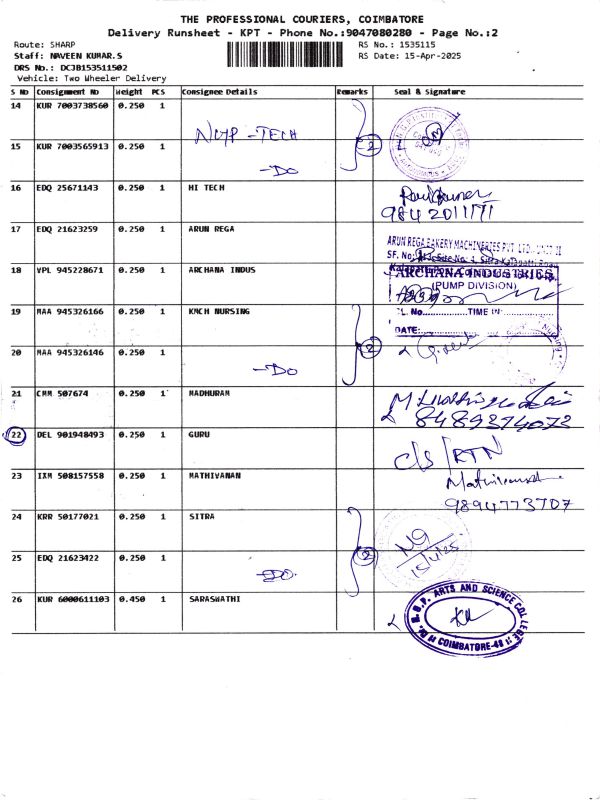 THE PROFESSIONAL COURIERS, COIMBATORE
Delivery Runsheet - KPT - Phone No.:9047080280 - Page No.:2
Route: SHARP
RS No.: 1535115
Staff: NAVEEN KUMAR.S
RS Date: 15-Apr-2025
DRS No.: DCJB153511502
Vehicle: Two Wheeler Delivery
S No Consignment No Weight PCS Consignee Details Remarks Seal & Signature
14 KUR 7003738560 0.250 1
NGP - TECH
2
15 KUR 7003565913 0.250 1
- DO
16 EDQ 25671143 0.250 1 HI TECH
9842011171
17 EDQ 21623259 0.250 1 ARUN REGA
ARUN REGA BAKERY MACHINERIES PVT. LTD.
18 VPL 945228671 0.250 1 ARCHANA INDUS
ARCHANA INDUSTRIES
(PUMP DIVISION)
19 MAA 945326166 0.250 1 KMCH NURSING
No. TIME IN:
DATE:
2
20 MAA 945326146 0.250 1
- DO
21 CMM 507674 0.250 1 MADHURAM
8489374073
22 DEL 901948493 0.250 1 GURU
C/S / RTN
23 IXM 508157558 0.250 1 MATHIVANAN
9894773707
24 KRR 50177021 0.250 1 SITRA
15/4/25
2
25 EDQ 21623422 0.250 1
- DO.
26 KUR 6000611103 0.450 1 SARASWATHI
ARTS AND SCIENCE COLLEGE
COIMBATORE-48